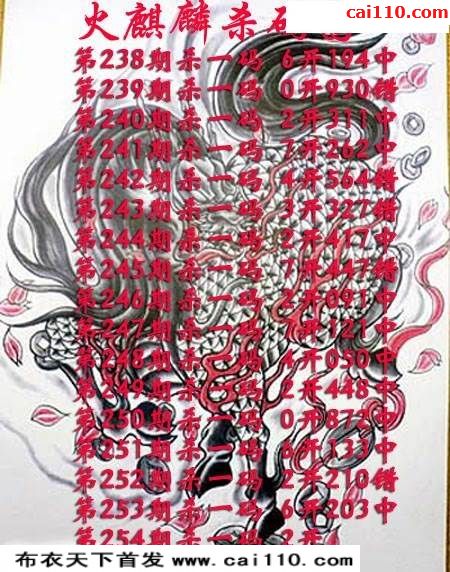 cai110.com
火麒麟杀码
第238期杀一码 6开194中
第239期杀一码 0开930错
第240期杀一码 2开311中
第241期杀一码 7开262中
第242期杀一码 4开564错
第243期杀一码 3开327错
第244期杀一码 2开417中
第245期杀一码 7开447错
第246期杀一码 2开091中
第247期杀一码 7开121中
第248期杀一码 4开050中
第249期杀一码 2开448中
第250期杀一码 0开872中
第251期杀一码 6开133中
第252期杀一码 2开210错
第253期杀一码 6开203中
第254期杀一码 2开
布衣天下首发 www.cai110.com